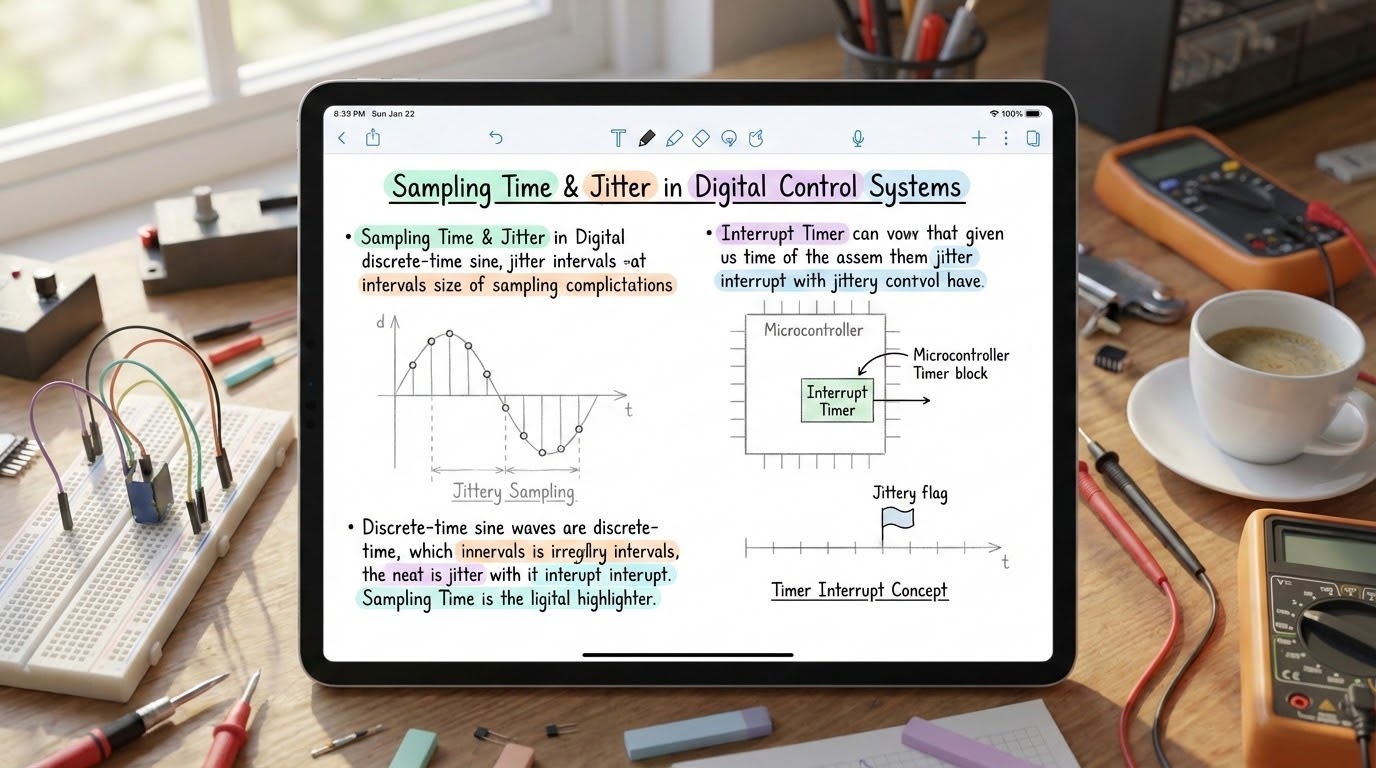 8:39 PM Sun Jan 22
100%
T
Sampling Time & Jitter in Digital Control Systems
• Sampling Time & Jitter in Digital
discrete-time sine, jitter intervals -at
intervals size of sampling complictations
d
t
Jittery Sampling
• Discrete-time sine waves are discrete-
time, which innervals is irregĺry intervals,
the neat is jitter with it interupt interupt.
Sampling Time is the ligital highlighter.
• Interrupt Timer can vowr that given
us time of the assem them jitter
interrupt with jittery control have.
Microcontroller
Microcontroller
Timer block
Interrupt
Timer
Jittery flag
t
Timer Interrupt Concept